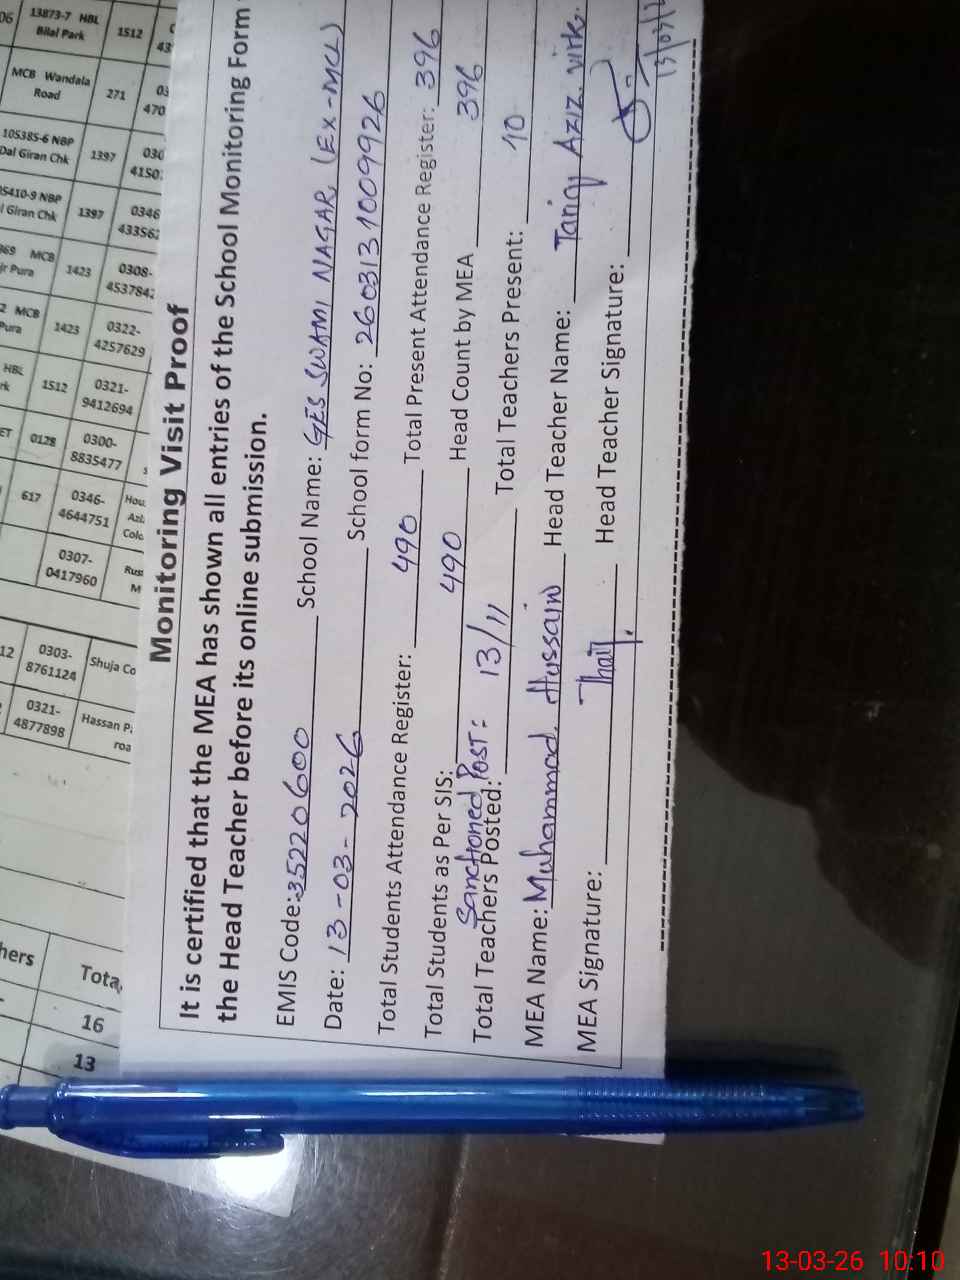 Monitoring Visit Proof
It is certified that the MEA has shown all entries of the School Monitoring Form
the Head Teacher before its online submission.
EMIS Code: 35220600 School Name: GES SWAMI NAGAR, (EX-MCL)
Date: 13-03-2026 School form No: 2603131009926
Total Students Attendance Register: 490 Total Present Attendance Register: 396
Total Students as Per SIS: 490 Head Count by MEA 396
Sanctioned Post:
Total Teachers Posted: 13/11 Total Teachers Present: 10
MEA Name: Muhammad Hussain Head Teacher Name: Tariq Aziz Virk.
MEA Signature: Head Teacher Signature:
06 13873-7 HBL Bilal Park 1512
MCB Wandala Road 271 470
105385-6 NBP Dal Giran Chk 1397 030 4150
5410-9 NBP l Giran Chk 1397 0346 43356
369 MCB jr Pura 1423 0308- 453784
2 MCB Pura 1423 0322- 4257629
HBL rk 1512 0321- 9412694
ET 0128 0300- 8835477
617 0346- 4644751 Hou
0307- 0417960 Rus M
12 0303- 8761124 Shuja Co
0321- 4877898 Hassan P roa
hers Tota
16
13
13-03-26 10:10